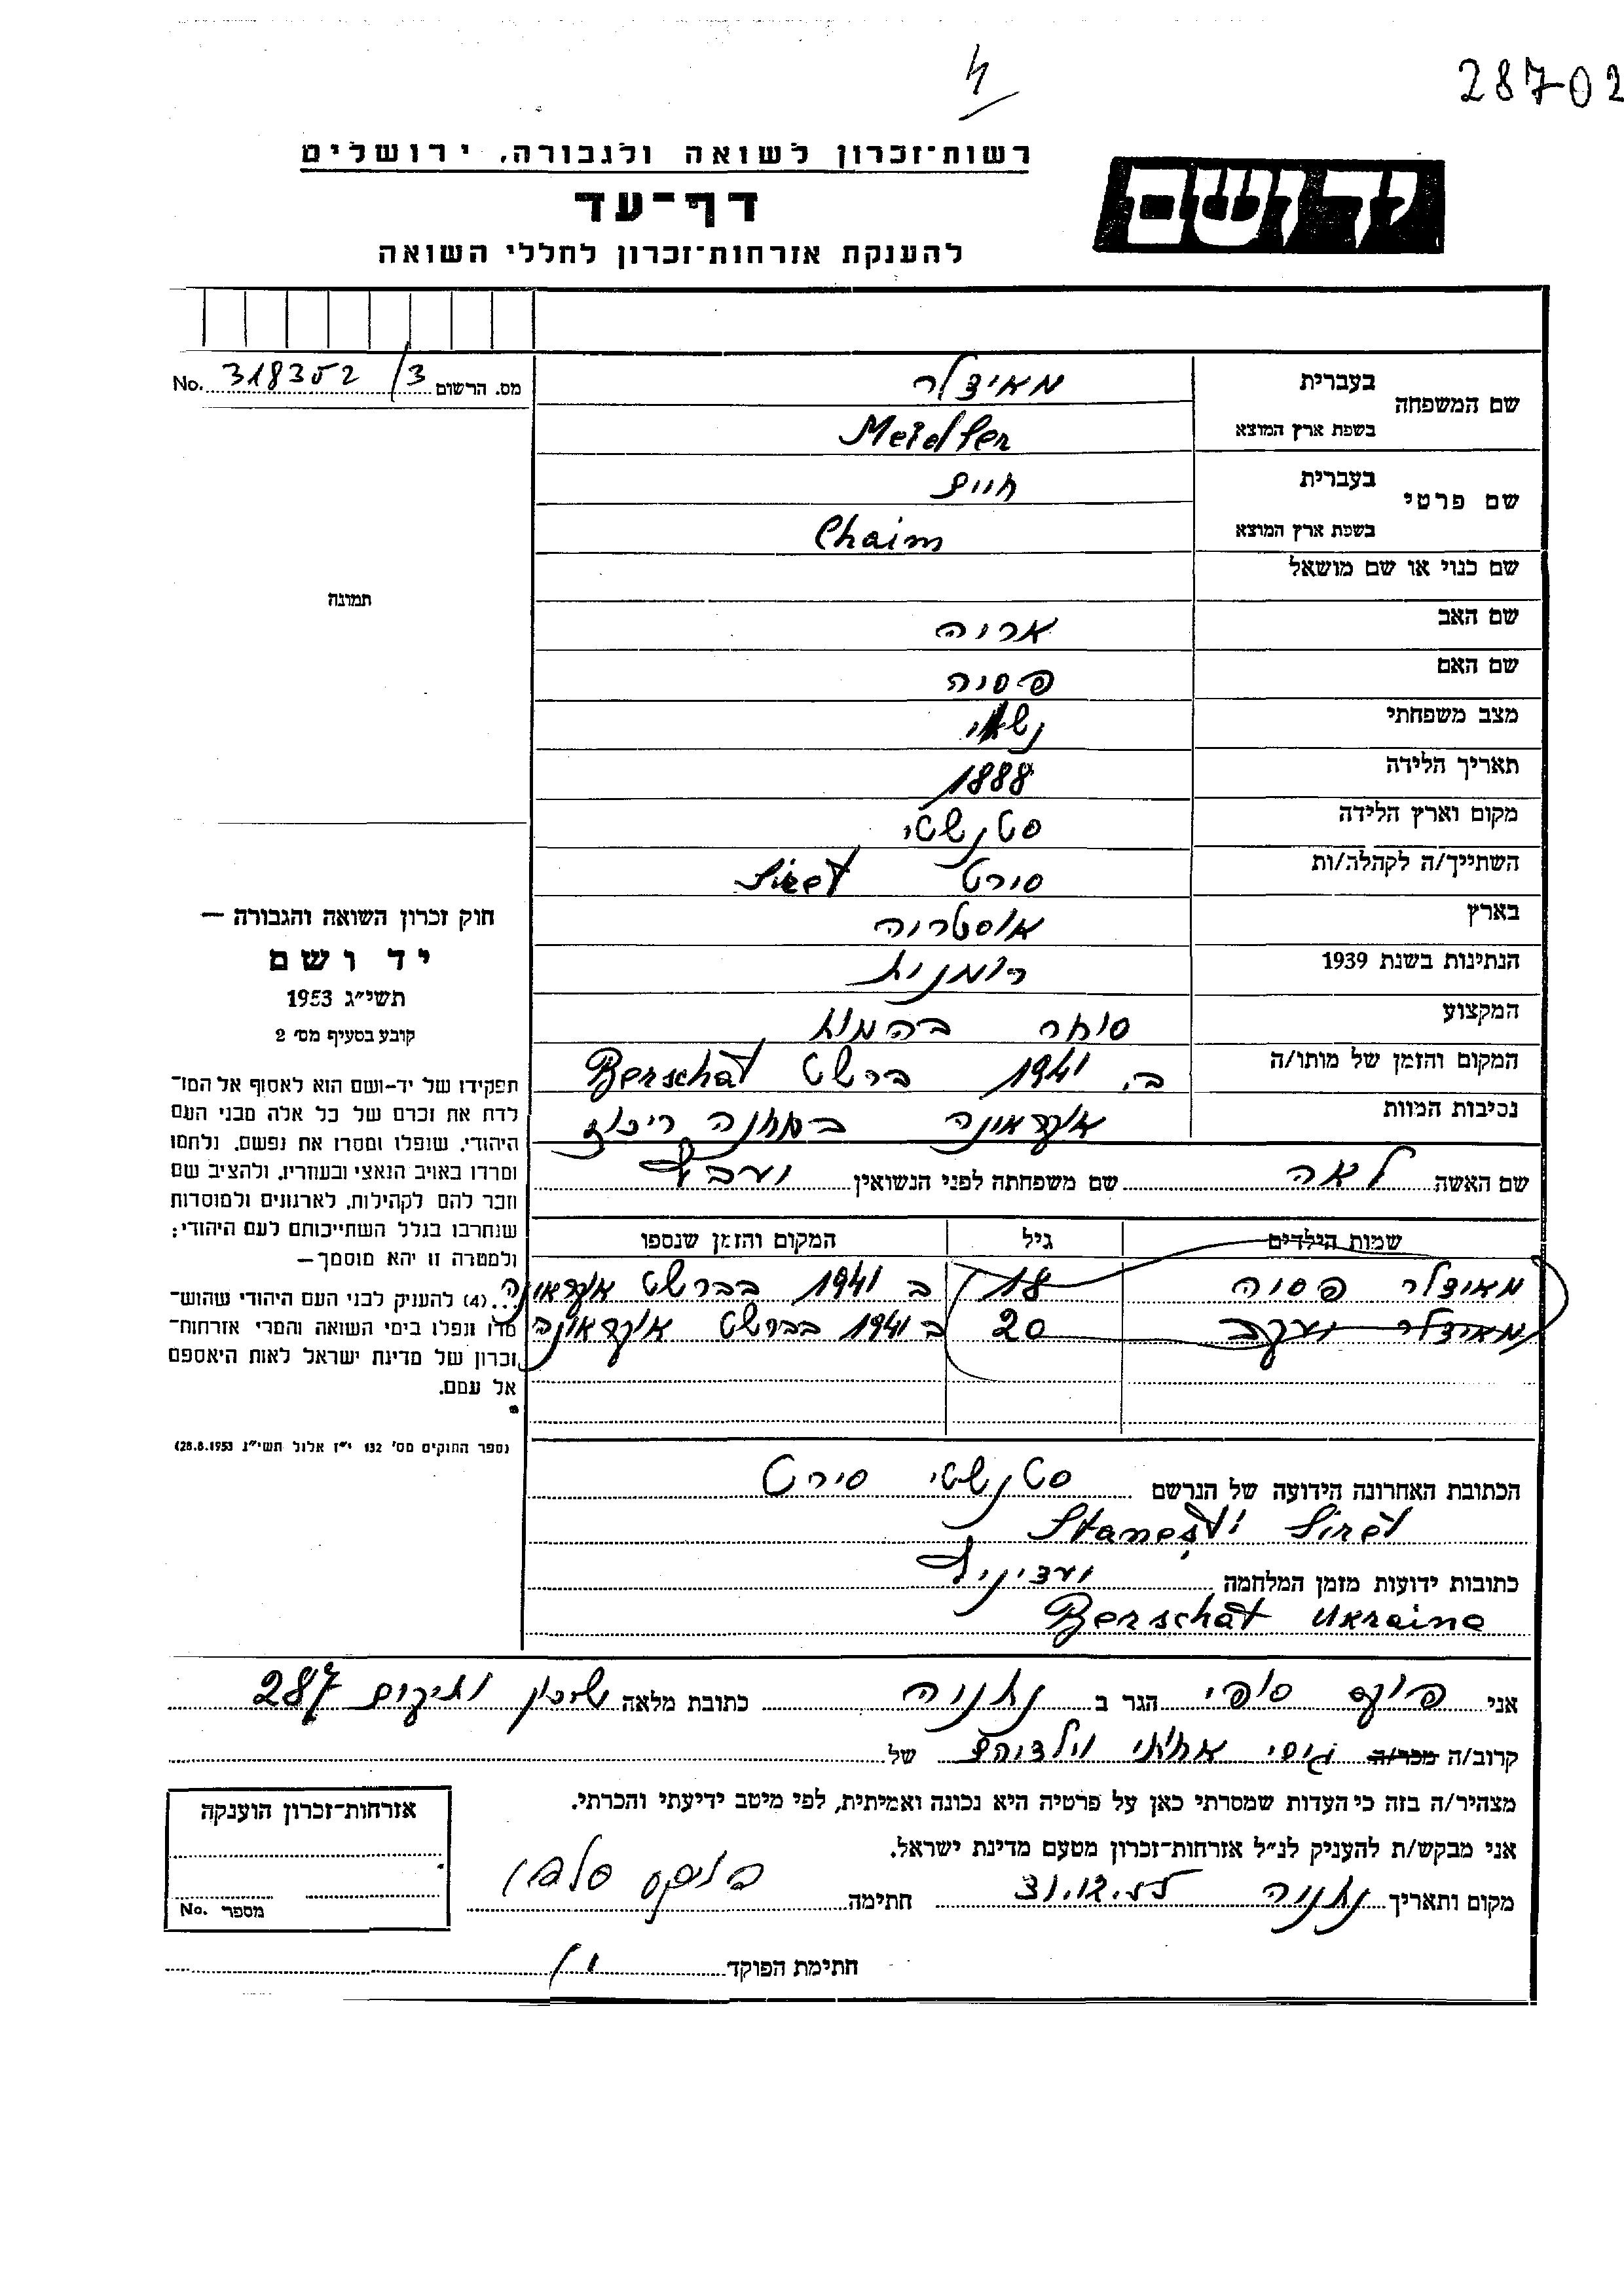 28702
4
רשות־זכרון לשואה ולגבורה, ירושלים
דף־עד
להענקת אזרחות־זכרון לחללי השואה
יד ושם
מס. הרשום 318302/3 No.
שם המשפחה
בעברית מאידלר
בשפת ארץ המוצא Meidler
שם פרטי
בעברית חיים
בשפת ארץ המוצא Chaim
שם כנוי או שם מושאל
שם האב אריה
שם האם פסיה
מצב משפחתי נשאוי
תאריך הלידה 1888
מקום וארץ הלידה סטנשטי
השתייך/ה לקהלה/ות סירט Siret
בארץ אוסטריה
הנתינות בשנת 1939 רומנית
המקצוע סוחר בהמות
המקום והזמן של מותו/ה ב. 1941 ברשט Berschat
נסיבות המוות אוקראינה במחנה ריכוז
שם האשה לאה שם משפחתה לפני הנשואין
שמות הילדים גיל המקום והזמן שנספו
מאידלר פסיה 18 ב 1941 בברשט אוקראינה
מאידלר יעקב 20 ב 1941 בברשט אוקראינה
הכתובת האחרונה הידועה של הנרשם סטנשטי סירט
Stanesti Siret
כתובות ידועות מזמן המלחמה
Berschat Ukraine
אני פוקס סופי הגר ב נתניה כתובת מלאה שיכון ותיקים 287
קרוב/ה מכר/ה גיסי אחותי וילדיהם של
מצהיר/ה בזה כי העדות שמסרתי כאן על פרטיה היא נכונה ואמיתית, לפי מיטב ידיעתי והכרתי.
אני מבקש/ת להעניק לנ״ל אזרחות־זכרון מטעם מדינת ישראל.
מקום ותאריך נתניה 31.12.55 חתימה
חתימת הפוקד
תמונה
חוק זכרון השואה והגבורה —
יד ושם
תשי״ג 1953
קובע בסעיף מס׳ 2
תפקידו של יד-ושם הוא לאסוף אל המו־
לדת את זכרם של כל אלה מבני העם
היהודי, שנפלו ומסרו את נפשם, נלחמו
ומרדו באויב הנאצי ובעוזריו, ולהציב שם
וזכר להם לקהילות, לארגונים ולמוסדות
שנחרבו בגלל השתייכותם לעם היהודי;
ולמטרה זו יהא מוסמך—
...(4) להעניק לבני העם היהודי שהוש־
מדו ונפלו בימי השואה והמרי אזרחות־
זכרון של מדינת ישראל לאות היאספם
אל עמם.
(ספר החוקים מס׳ 132 י״ז אלול תשי״ג 28.8.1953)
אזרחות־זכרון הוענקה
מספר No.